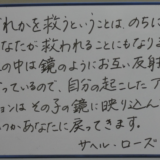 だれかを救うということは、のちに
あなたが救われることにもなりま
の中は鏡のようにお互い反射
っているので、自分の起こしたア
ションはその子の鏡に映り込ん
つかあなたに戻ってきます。
サヘル・ローズ